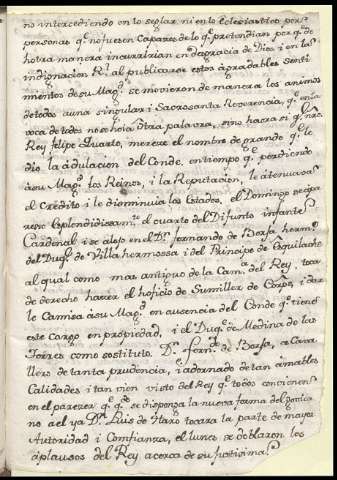 no intercediendo en lo seglar, ni en lo eclesiastico por
personas q.e no fuesen Capaces de lo q.e pretendian por q.e de
hotra manera incurririan en desgracia de Dios i en la
indignacion R.l al publicarse estos agradables senti
mientos de su Mag.d se movieron de manera los animos
de todos a una singular i Sacrosanta Reverencia, q.e en la
voca de todos no se hoia otra palavra, sino hacia si q.e nro
Rey felipe Quarto, merece el nombre de grande q.e le
dio la adulacion del Conde, en tiempo q.e perdiendo
a su Mag.d los Reinos, i la Reputacion, le atenuava
el Credito i le disminuia los Estados, el Domingo se
esplendidisam.te el cuarto del Difunto infante
Cardenal i se alojo en el D.n fernando de Borja herm.o
del Duq.e de Villahermossa i del Principe de Esquilache
al qual como mas antiguo de la Cam.a del Rey toca
de derecho hacer el hoficio de Sumiller de Corps, i dar
la Camisa a su Mag.d en ausencia del Conde q.e tiene
este cargo en propiedad, i el Duq.e de Medina de las
Torres como sostituto. D.n fern.do de Borja, es Cava
llero de tanta prudencia, i adornado de tan amables
Calidades i tan vien visto del Rey q.e todos convienen
en el parecer q.e q.do se disponga la nueva forma del govier
no a el ya D.n Luis de Haro tocara la parte de mayor
Autoridad i Confianza, el lunes se doblaron los
aplausos del Rey acerca de su justissima